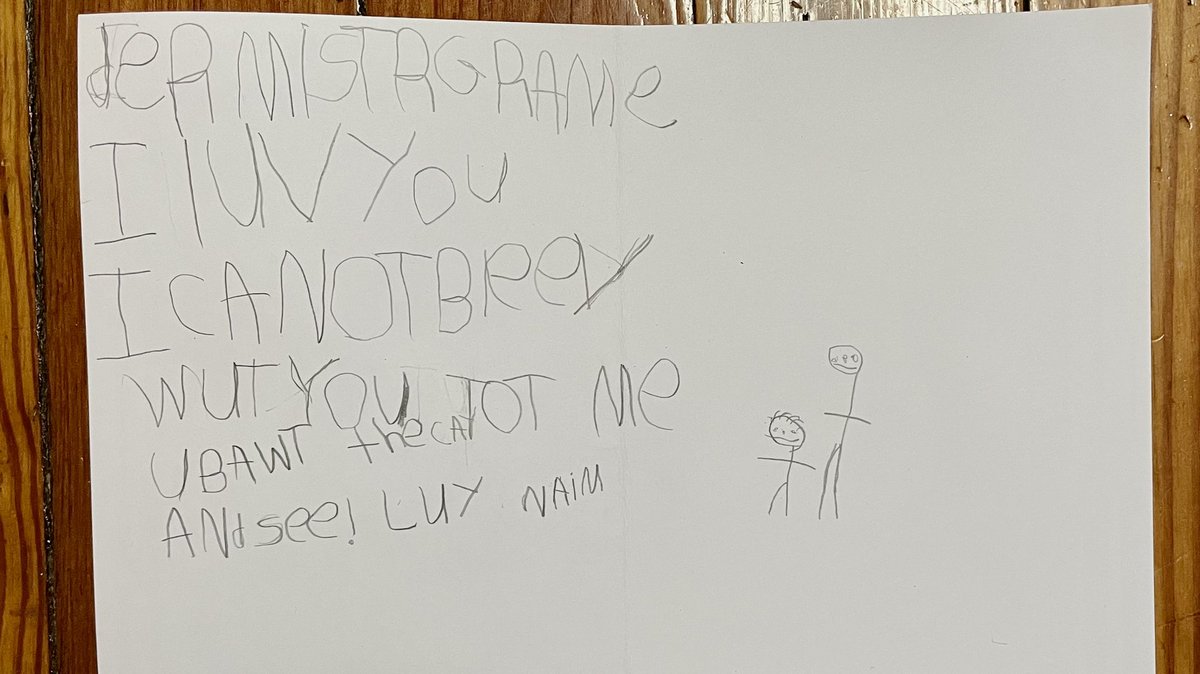 deR MISTR GRAMe
I lUV YOU
I CANOT BReev
WUT YOU TOT Me
UBAWT theCAY
ANdsee! LUY NAiM